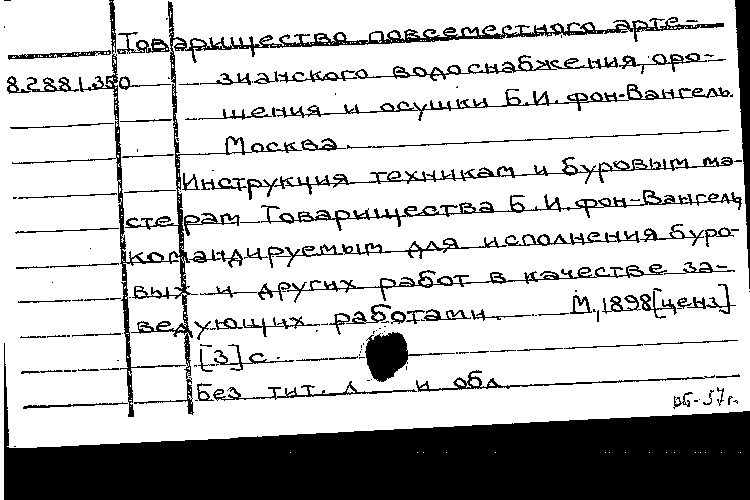 Товарищество повсеместного арте-
8.2881.350 зианского водоснабжения, оро-
шения и осушки Б.И. фон-Вангель.
Москва.
Инструкция техникам и буровым ма-
стерам Товарищества Б.И. фон-Вангель,
командируемым для исполнения буро-
вых и других работ в качестве за-
ведующих работами. М., 1898 [ценз]
[3] с.
Без тит. л. и обл.
РБ-57г.